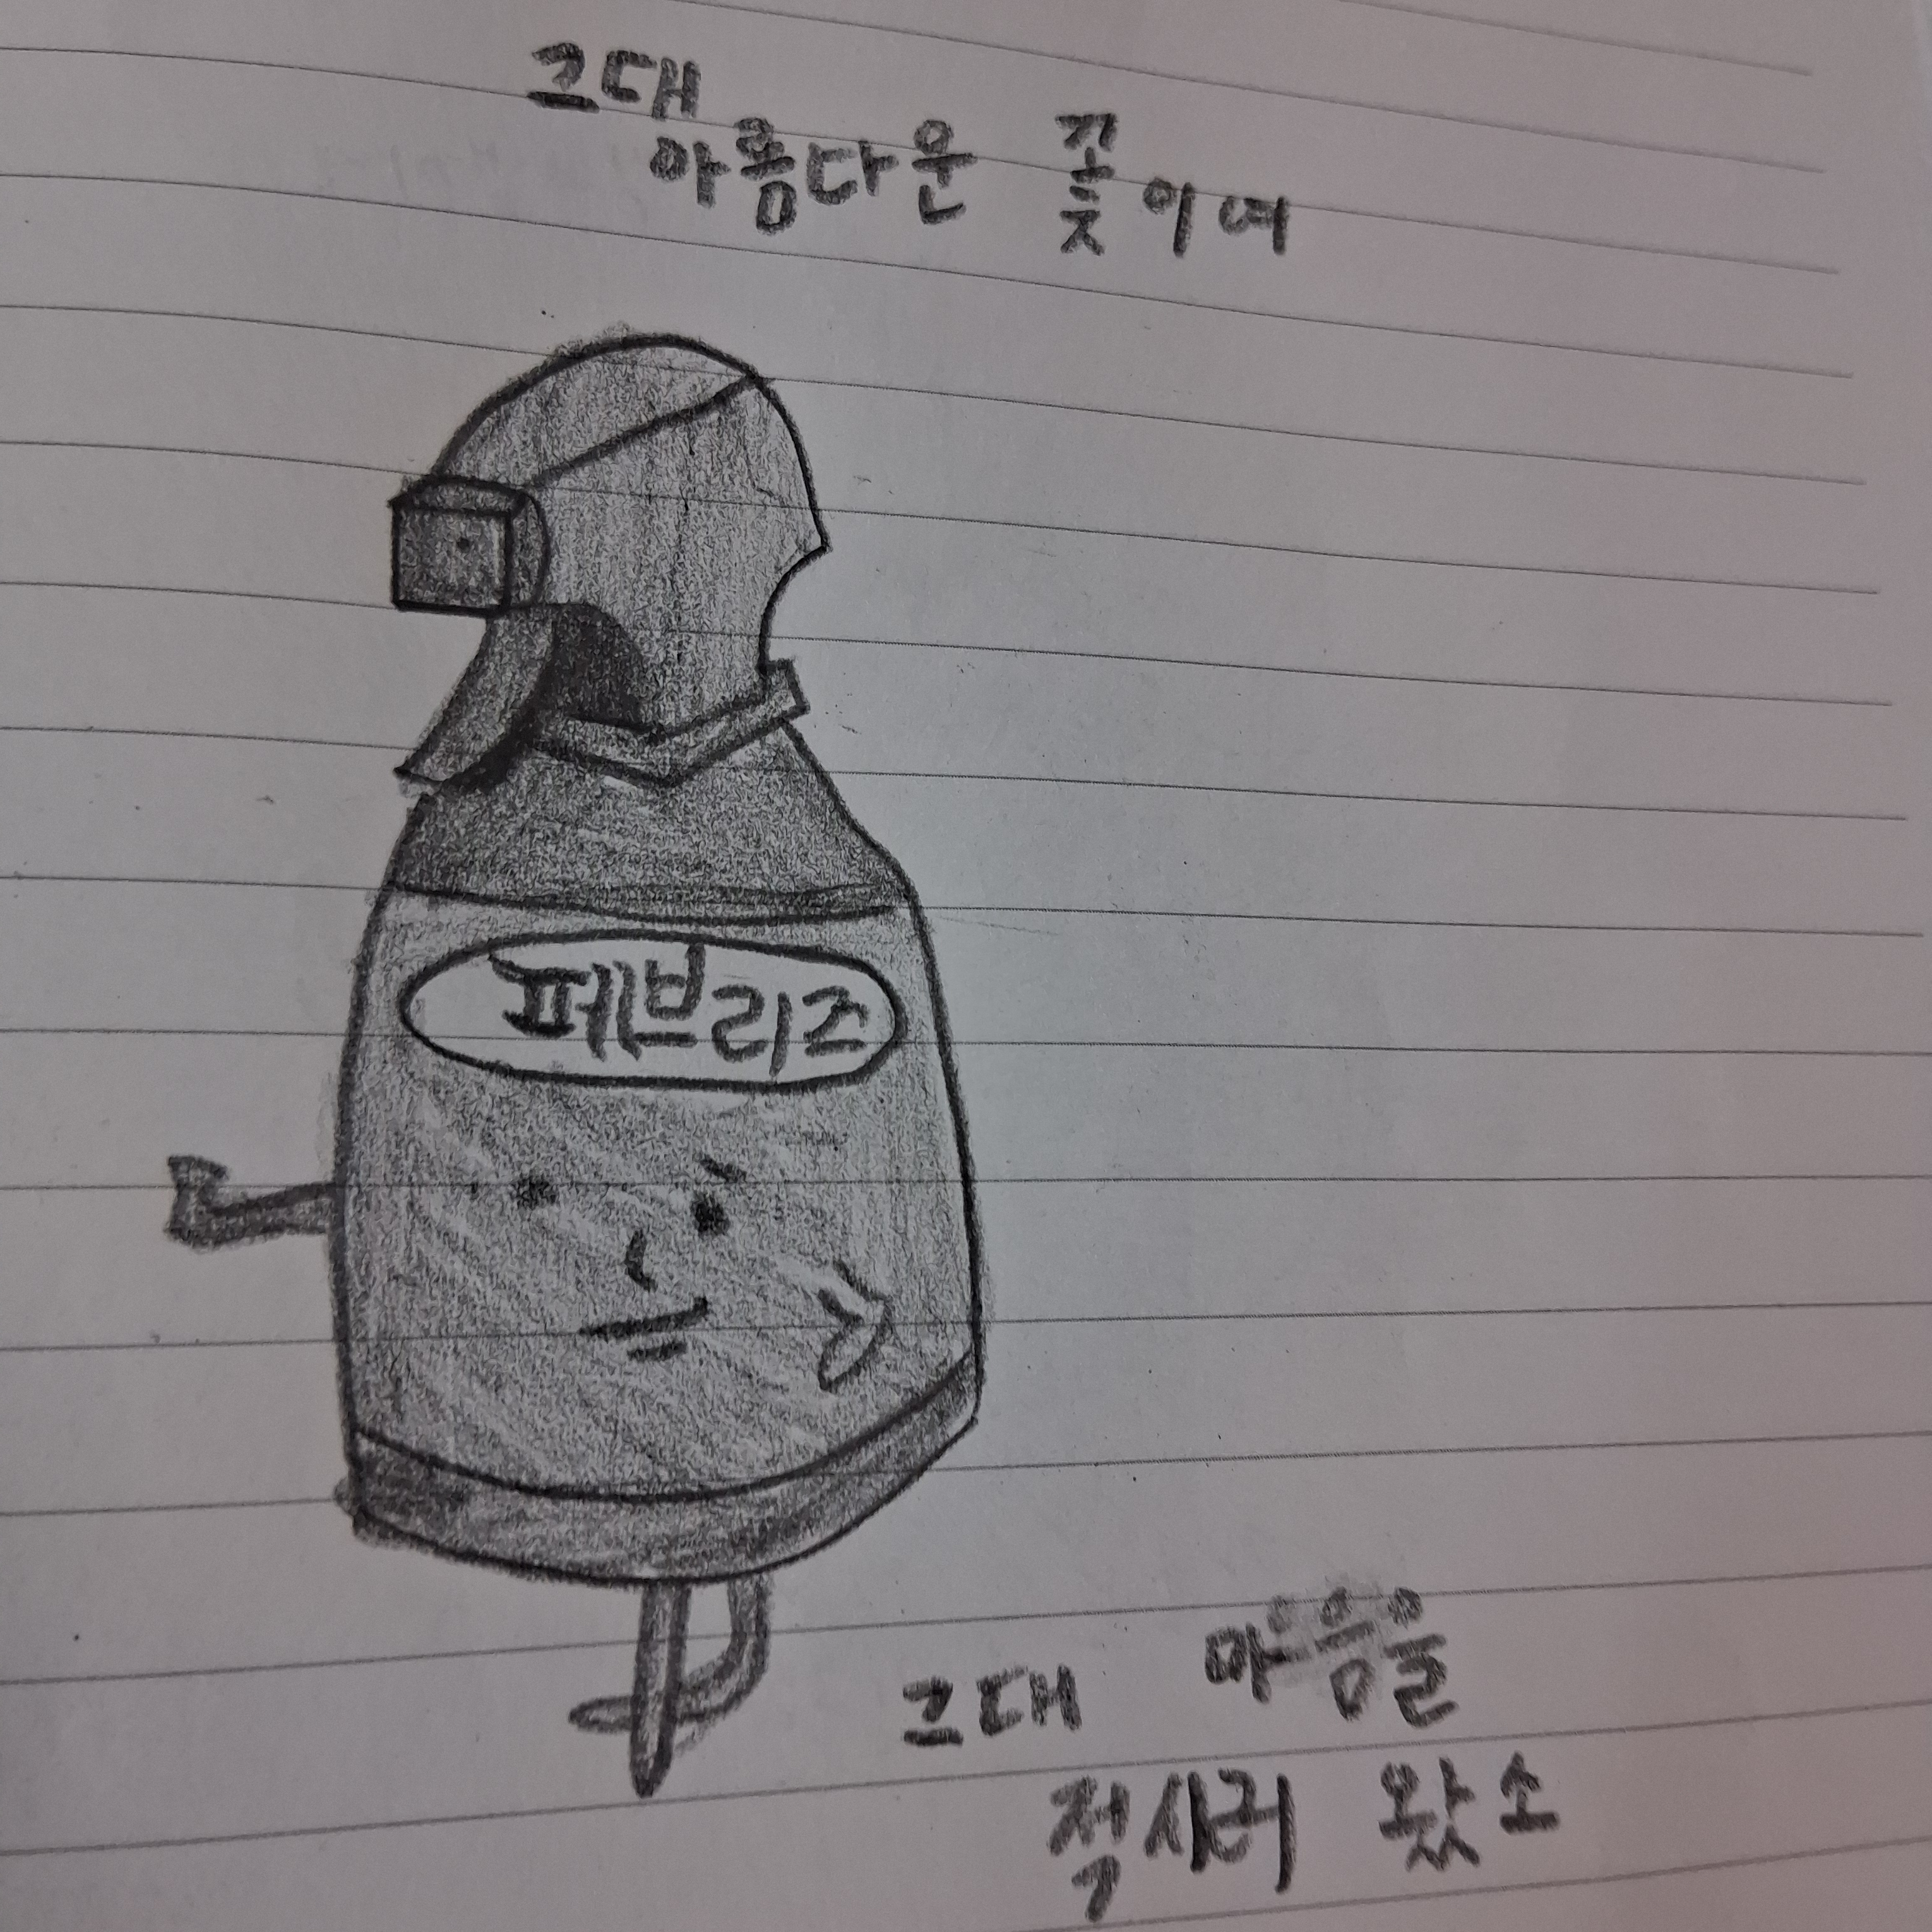 그대
아름다운 꽃이여
페브리즈
그대 마음을
적시러 왔소